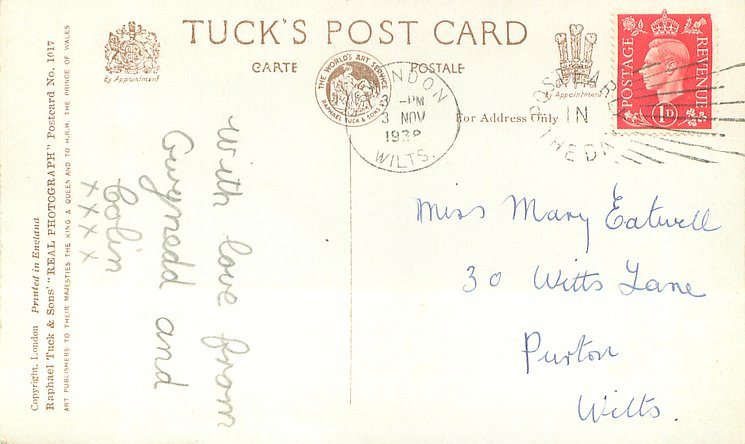 TUCK'S POST CARD
CARTE POSTALE
By Appointment
THE WORLD'S ART SERVICE
RAPHAEL TUCK & SONS
By Appointment
For Address Only
POSTAGE REVENUE
1D
3 -PM
3 NOV
1938
WILTS.
POST EARLY
IN
THE DAY
With love from
Gwynedd and
Colin
xxxx
Miss Mary Eatwell
30 Witts Lane
Purton
Wilts.
Copyright, London Printed in England
Raphael Tuck & Sons' "REAL PHOTOGRAPH" Postcard No. 1017
ART PUBLISHERS TO THEIR MAJESTIES THE KING & QUEEN AND TO H.R.H. THE PRINCE OF WALES